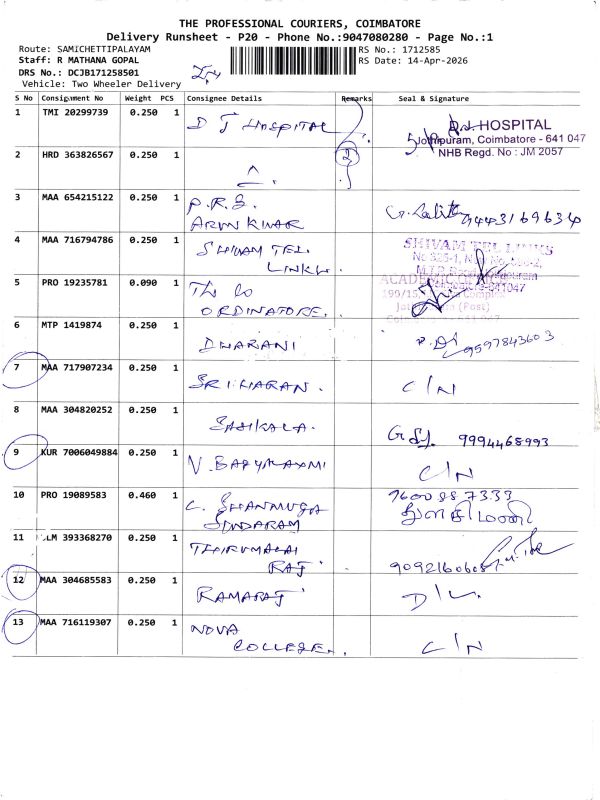 THE PROFESSIONAL COURIERS, COIMBATORE
Delivery Runsheet - P20 - Phone No.:9047080280 - Page No.:1
Route: SAMICHETTIPALAYAM
RS No.: 1712585
Staff: R MATHANA GOPAL
RS Date: 14-Apr-2026
DRS No.: DCJB171258501
Vehicle: Two Wheeler Delivery
S No Consignment No Weight PCS Consignee Details Remarks Seal & Signature
1 TMI 20299739 0.250 1 D J HOSPITAL
HOSPITAL
Jothipuram, Coimbatore - 641 047
NHB Regd. No : JM 2057
2 HRD 363826567 0.250 1 2
3 MAA 654215122 0.250 1 P.R.S.
ARUN KUMAR G. Lalitha 9443169634
4 MAA 716794786 0.250 1 SHIVAM TEL
LINKW. SHIVAM TEL LINKS
5 PRO 19235781 0.090 1 The Co
ORDINATORE. 641047
(Post)
6 MTP 1419874 0.250 1 DHARANI 9597843603
7 MAA 717907234 0.250 1 SRIHARAN. C/N
8 MAA 304820252 0.250 1 SASIKALA. 9994468993
9 KUR 7006049884 0.250 1 V. BAPYALAXMI C/N
10 PRO 19089583 0.460 1 C. SHANMUGA
SUNDARAM 7600887333
துளசிமணி
11 LM 393368270 0.250 1 THIRUMALAI
RAJ 9092160605
12 MAA 304685583 0.250 1 RAMARAJ D/L.
13 MAA 716119307 0.250 1 NOVA
COLLEGE. C/N